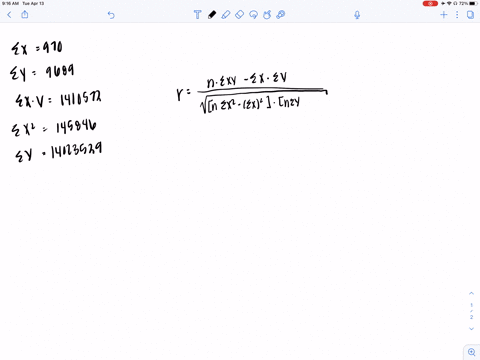 9:16 AM Tue Apr 13
72%
ΣX = 970
ΣY = 9689
ΣX·Y = 1410572
ΣX² = 145846
ΣY = 14023529
r = n·ΣXY - ΣX·ΣY
√[nΣX² - (ΣX)²]·[nΣY
1/2